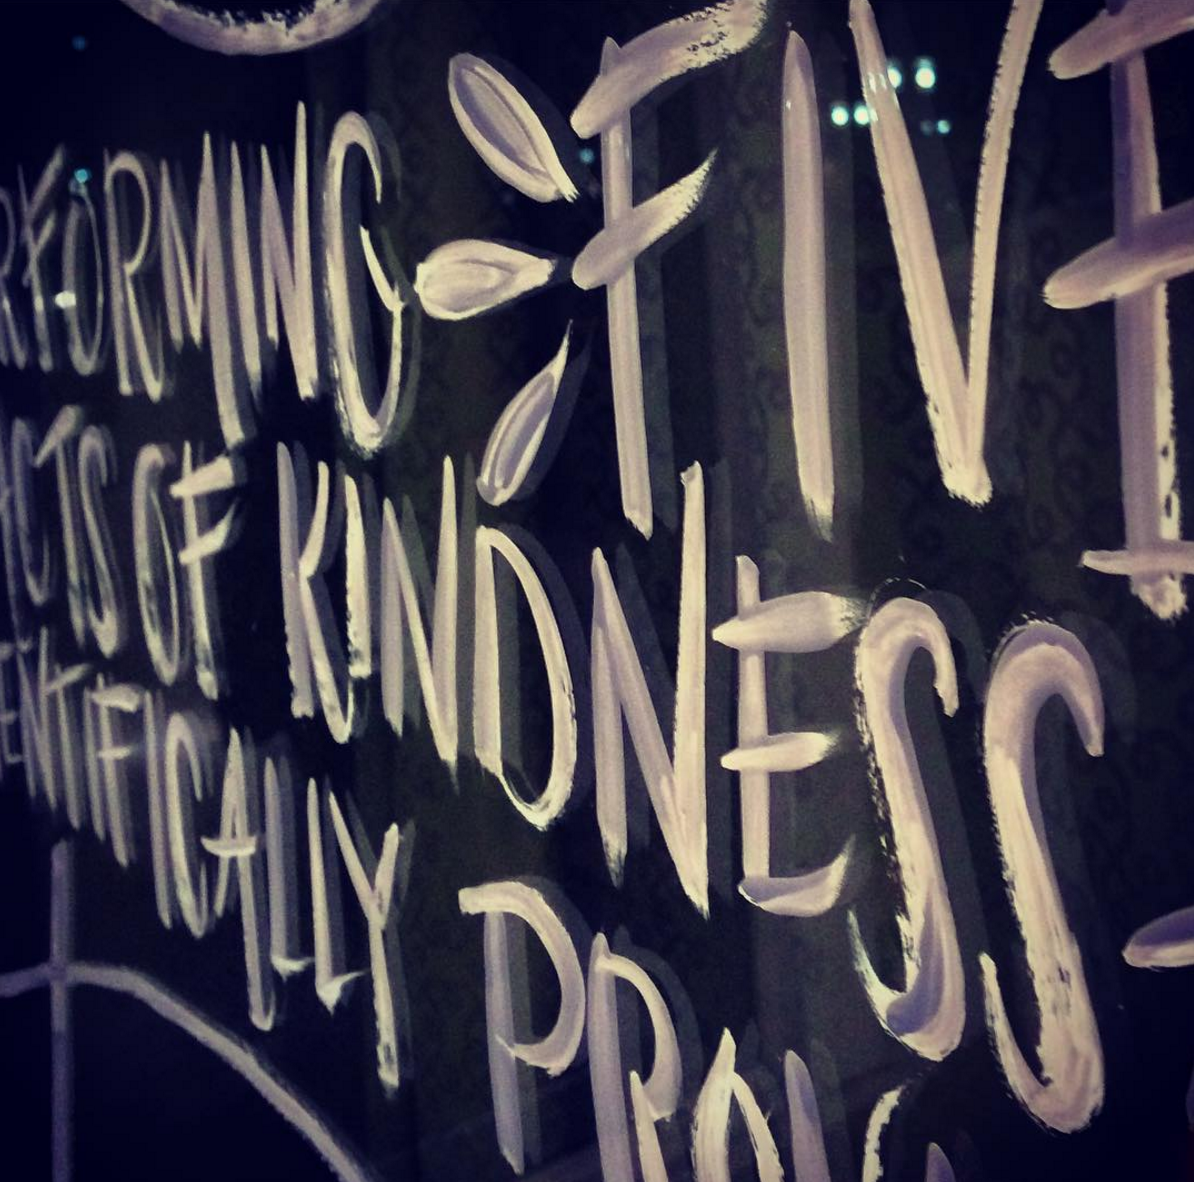 RFORMING FIVE
CTS OF KINDNESS
ENTIFICALLY PRO